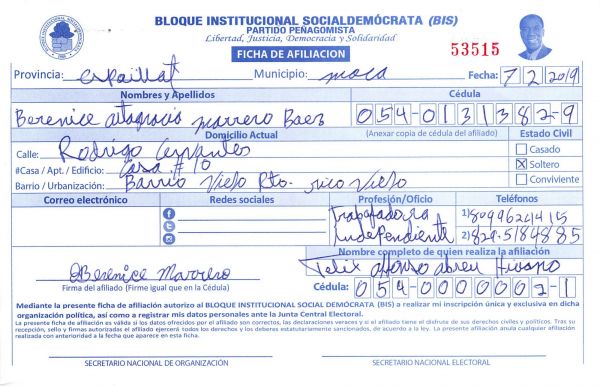 BLOQUE INSTITUCIONAL SOCIALDEMÓCRATA (BIS)
PARTIDO PEÑAGOMISTA
Libertad, Justicia, Democracia y Solidaridad
FICHA DE AFILIACION
53515
Provincia: Espaillat Municipio: moca Fecha: 7/2/2019
Nombres y Apellidos Cédula
Berenice altagracia marrero Baez 054-0131382-9
Domicilio Actual (Anexar copia de cédula del afiliado) Estado Civil
Calle: Rodrigo Cervantes
Casado
#Casa / Apt. / Edificio: Casa # 10
Soltero
Barrio / Urbanización: Barrio Viejo Rto. rico Viejo
Conviviente
Correo electrónico Redes sociales Profesión/Oficio Teléfonos
Trabajadora Independiente
1) 8099624415
2) 829.5184885
Nombre completo de quien realiza la afiliación
Felix abreu
Berenice Marrero
Firma del afiliado (Firme igual que en la Cédula)
Cédula: 054-0000002-1
Mediante la presente ficha de afiliación autorizo al BLOQUE INSTITUCIONAL SOCIAL DEMÓCRATA (BIS) a realizar mi inscripción única y exclusiva en dicha
organización política, así como a registrar mis datos personales ante la Junta Central Electoral.
La presente ficha de afiliación es válida si los datos ofrecidos por el afiliado son correctos, las declaraciones veraces y si el afiliado tiene el disfrute de sus derechos civiles y políticos. Tras su
recepción, sello y firmas autorizadas el afiliado ejercerá todos los derechos y los deberes estatutariamente sancionados, de acuerdo a la ley. La presente afiliación anula cualquier afiliación
realizada con anterioridad a la fecha que aparece en esta ficha.
SECRETARIO NACIONAL DE ORGANIZACIÓN SECRETARIO NACIONAL ELECTORAL